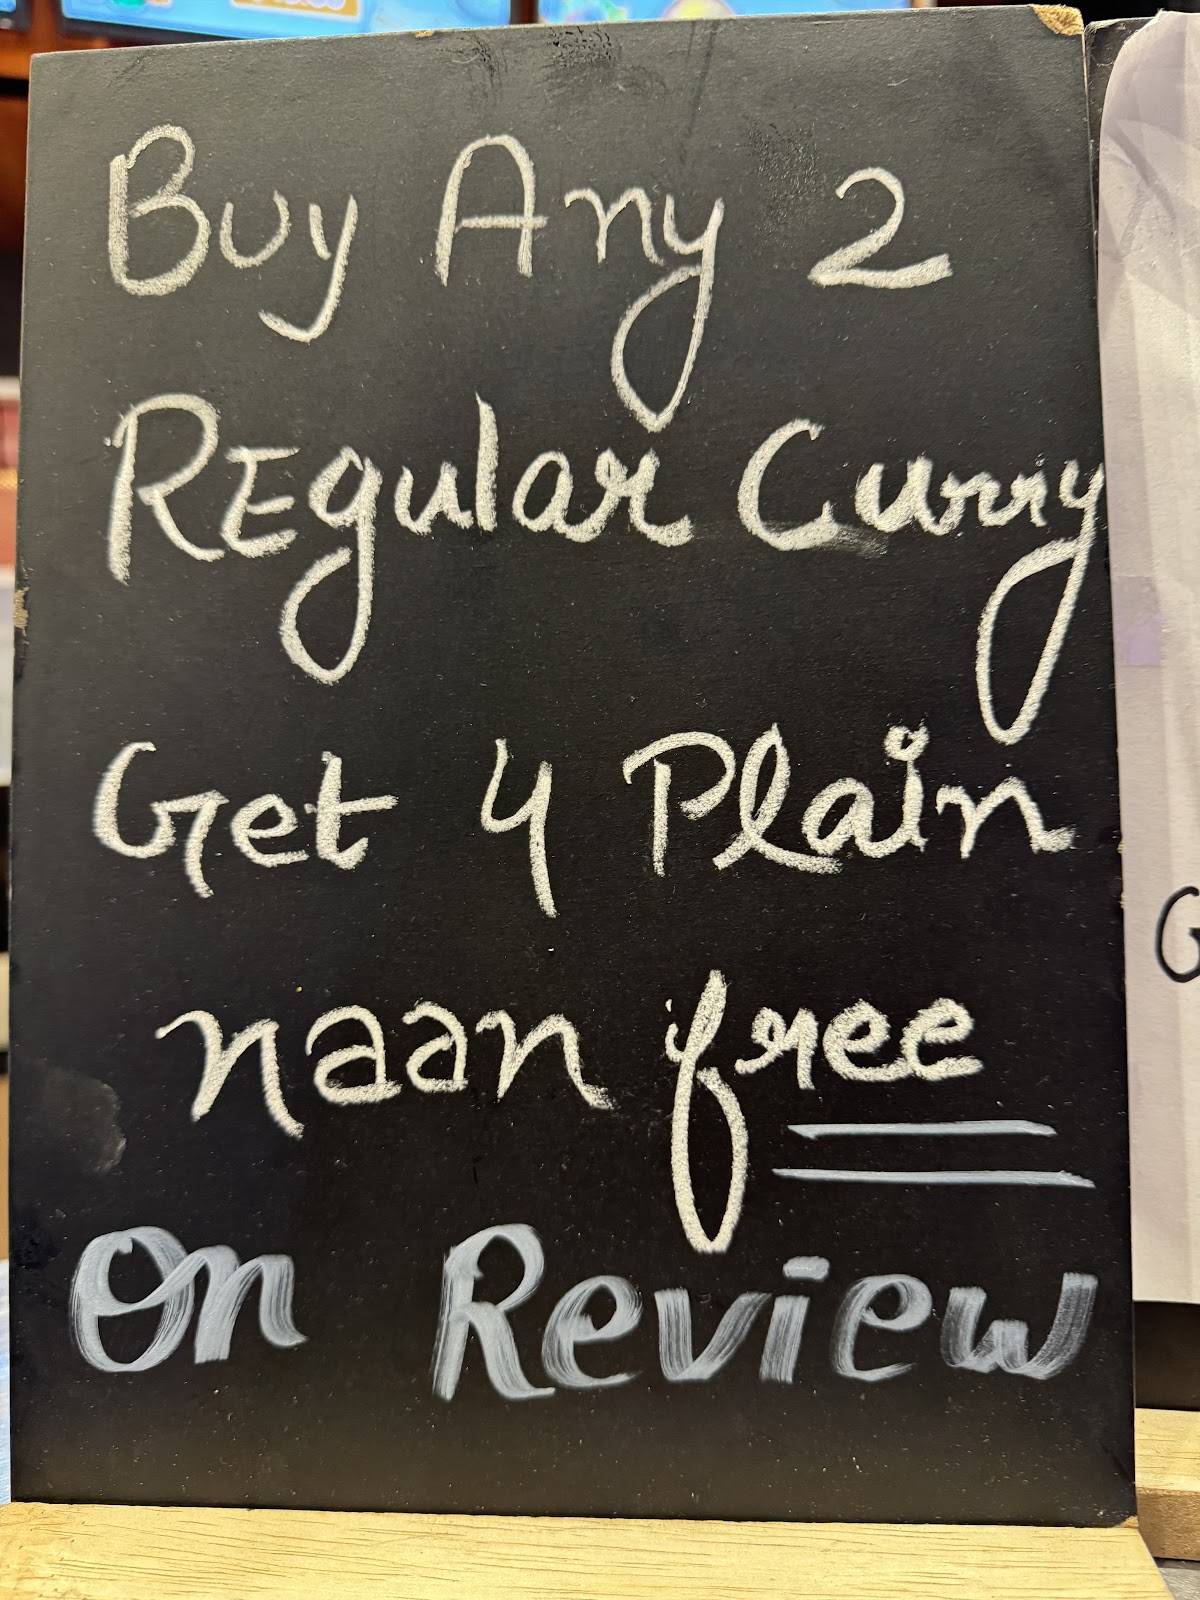 Buy Any 2
REgular Curry
Get 4 Plain
naan free
On Review
G